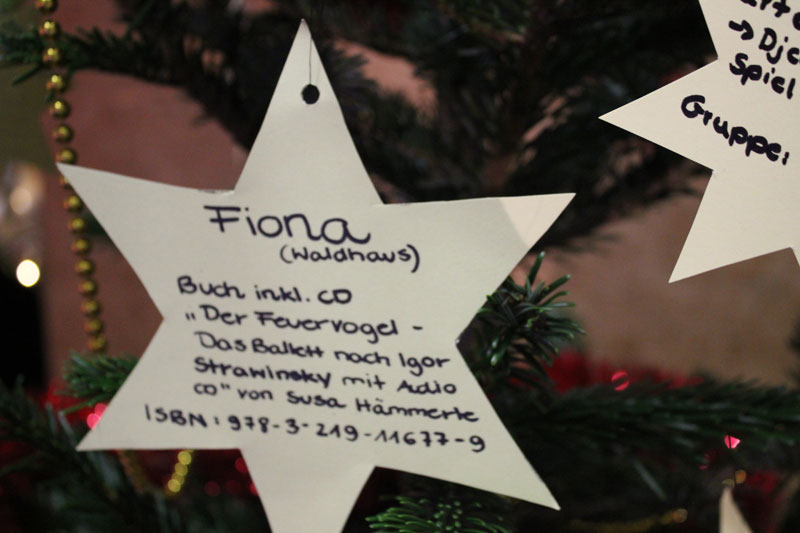 Fiona
(Waldhaus)
Buch inkl. CD
"Der Feuervogel -
Das Ballett nach Igor
Strawinsky mit Audio
CD" von Susa Hämmerle
ISBN: 978-3-219-11677-9
Spiel
Gruppe: